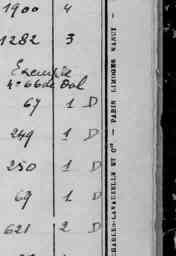 1900 4
1282 3
Exemple
4º 66 de Dol
67 1 D
249 1 D
250 1 D
69 1 D
621 2 D
CHARLES-LAVAUZELLE ET Cie — PARIS LIMOGES NANCY —